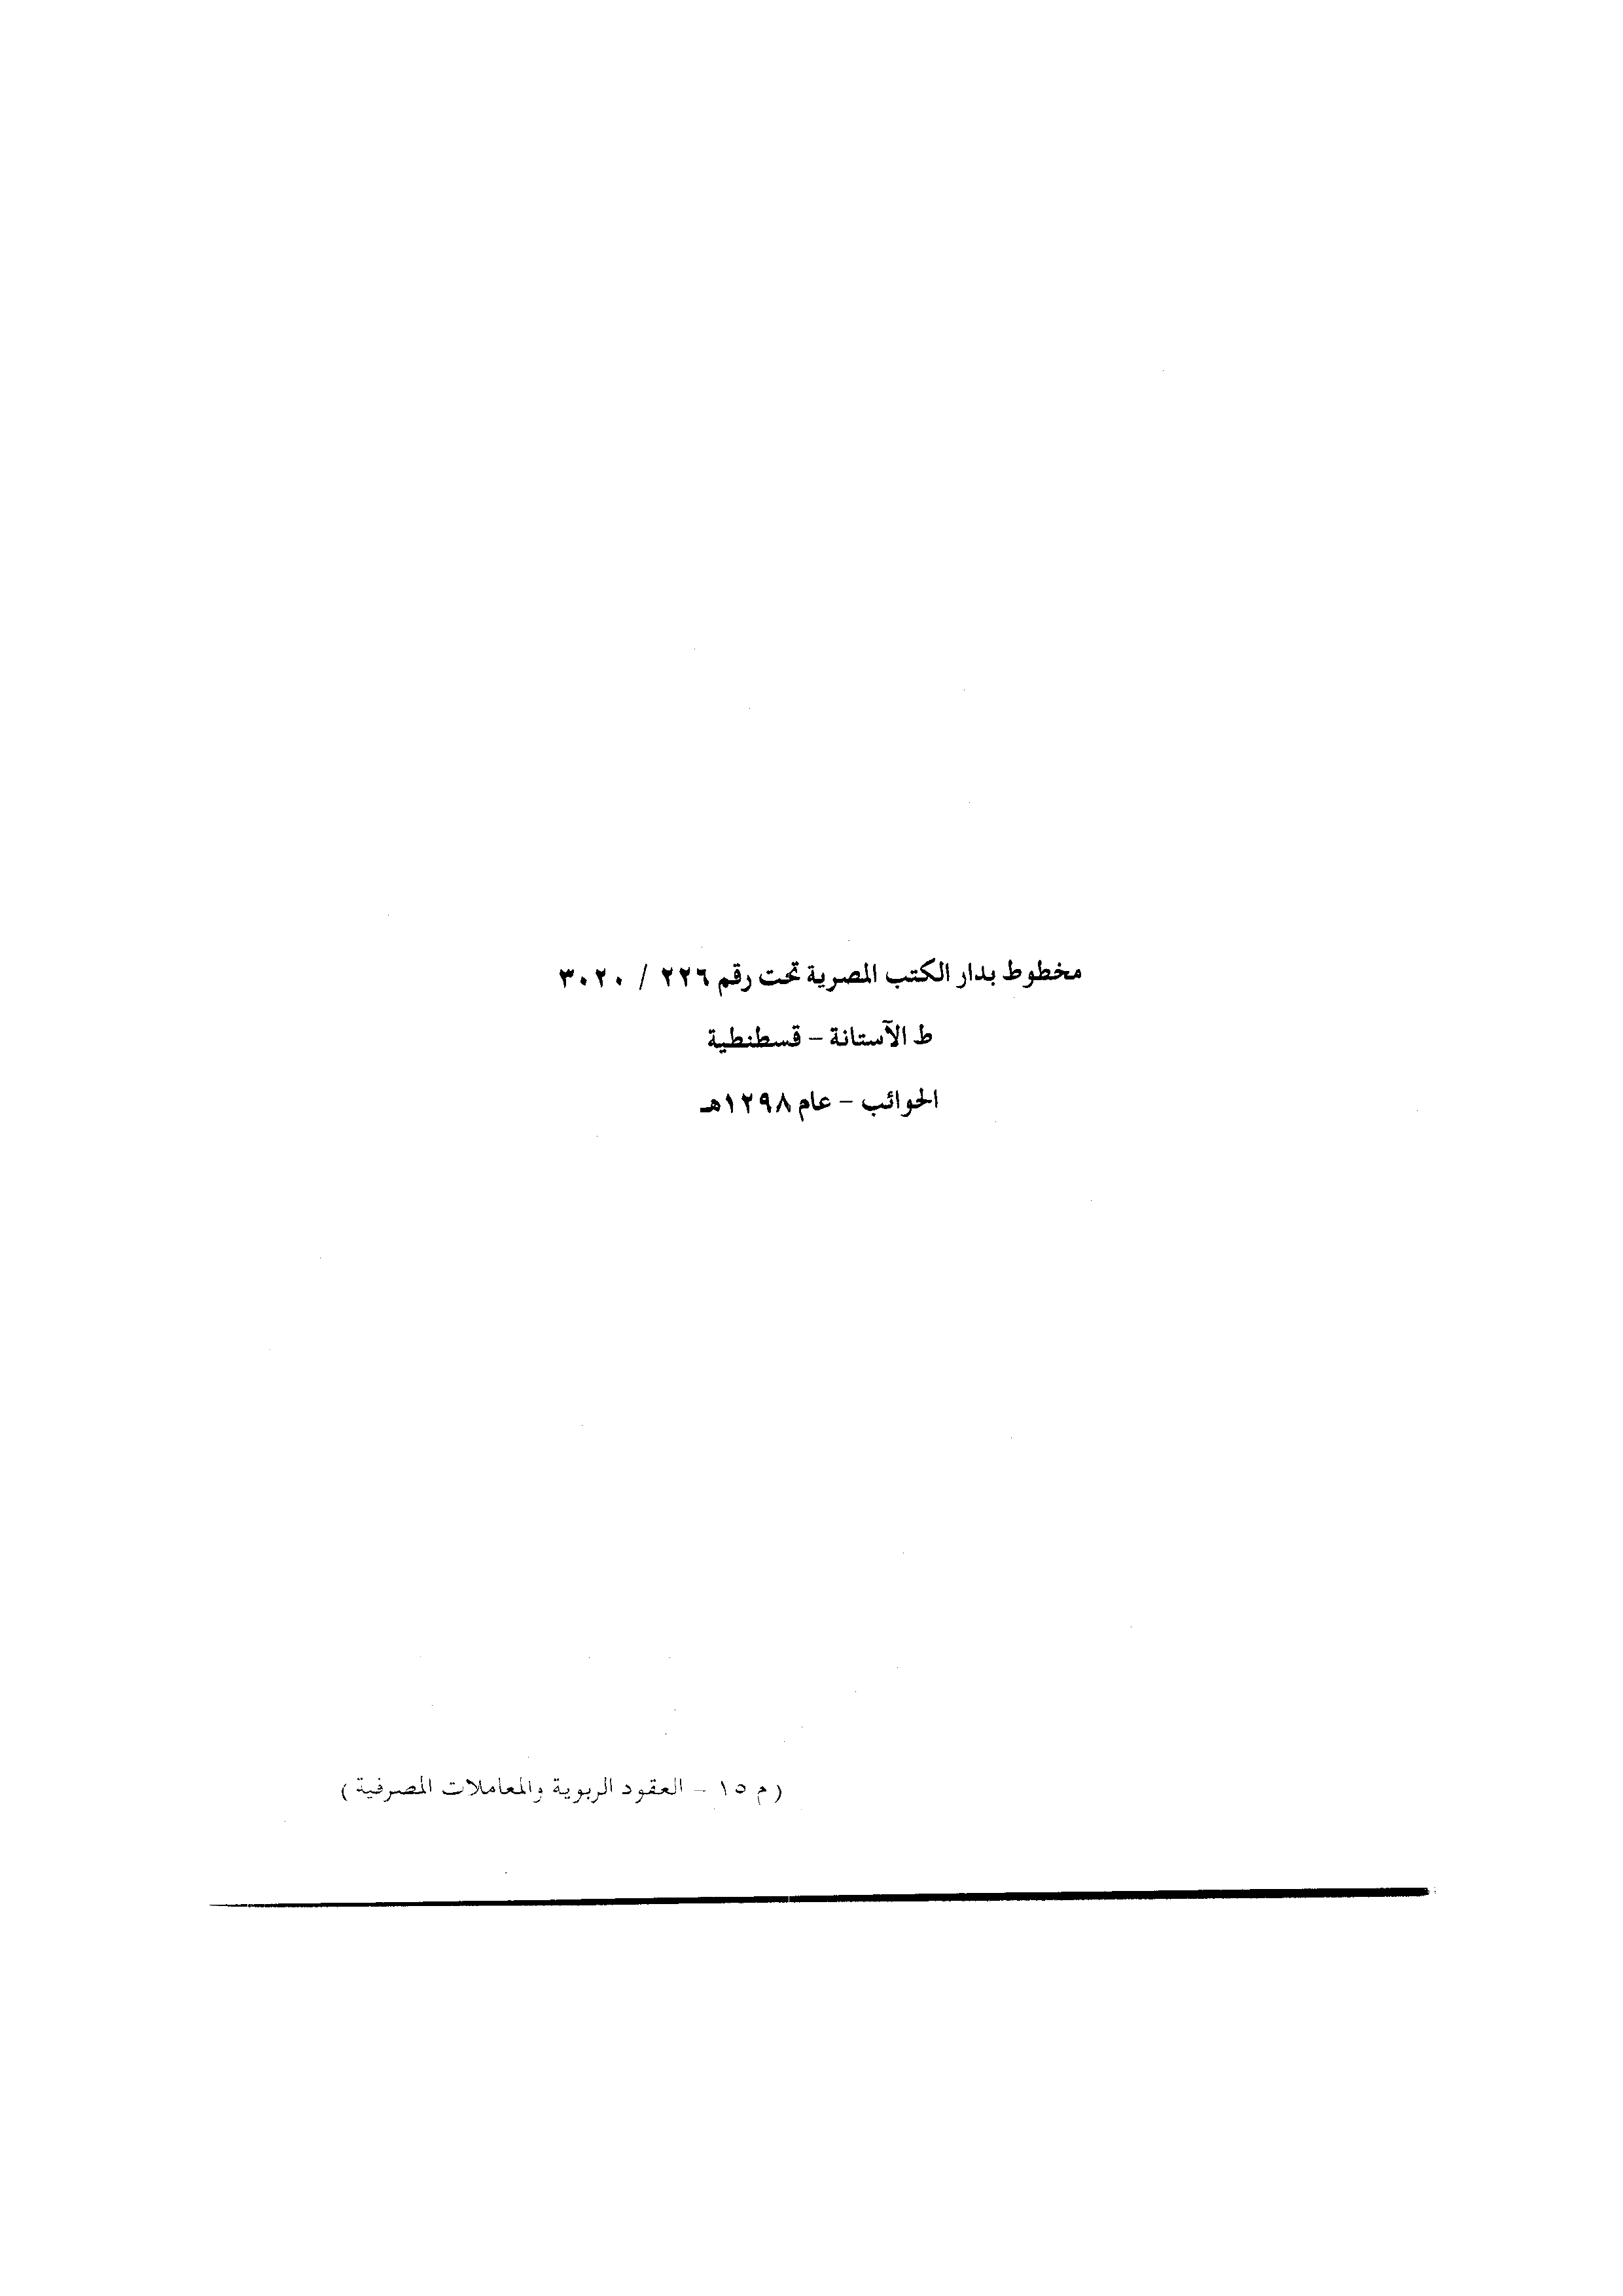 مخطوط بدار الكتب المصرية تحت رقم ٢٢٦ / ٣٠٢٠
ط الآستانة - قسطنطية
الحوائب - عام ١٢٩٨هـ
( م ١٥ - العقود الربوية والمعاملات المصرفية )